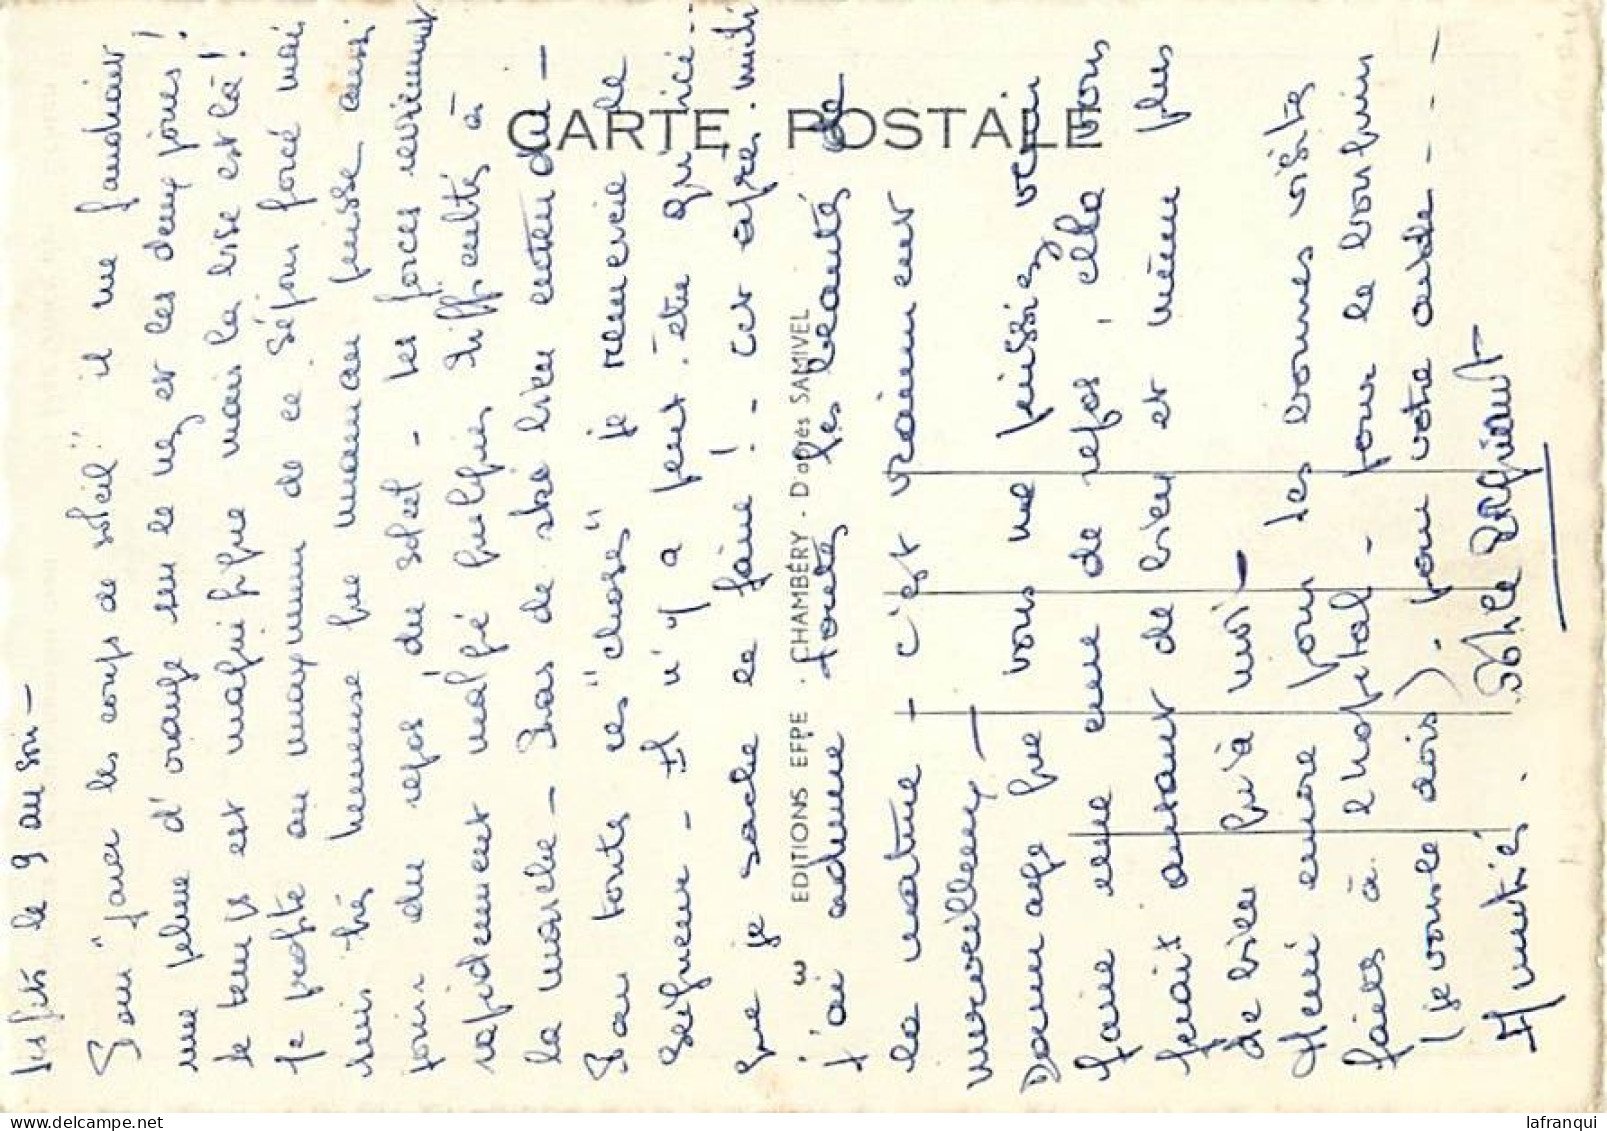 CARTE POSTALE
3 EDITIONS EFPE . CHAMBÉRY - D'après SAMIVEL
le 9 au soir -
Pour "parer les coups de soleil" il me faudrait
une pelure d'orange sur le nez et les deux joues !
le temps est magnifique mais la bise est là !
Je profite au maximum de ce séjour forcé mais
suis très heureuse que maman puisse aussi
jouir du repos du soleil - les forces reviennent
rapidement malgré quelques difficultés à
la marche - Pas de ski bien entendu -
Pour toutes ces "choses" je remercie le
Seigneur - Il n'y a peut-être qu'ici --
que je sache le faire ! - cet après-midi
j'ai admiré toutes les beautés de
la nature - c'est vraiment
merveilleux -
Dommage que vous ne puissiez venir
faire une cure de repos, elle vous
ferait autant de bien et même plus
de bien qu'à moi -
Merci encore pour les bonnes visites
faites à l'hopital - pour le bouquin
(je vous le dois) - pour votre aide ----
Amitiés.